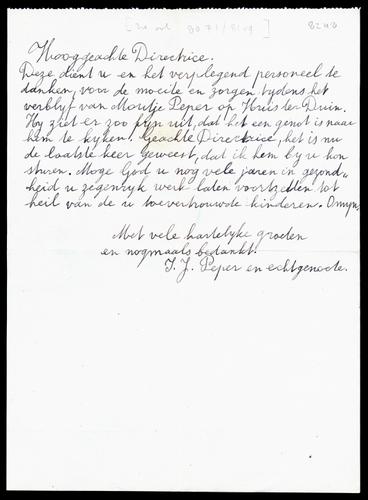 8248
Hooggeachte Directrice.
Deze dient u en het verplegend personeel te
danken, voor de moeite en zorgen tydens het
verblyf van Maritje Peper op Huis ter Duin.
Hy ziet er zoo fyn uit, dat het een genot is naar
hem te kyken. Geachte Directrice, het is nu
de laatste keer geweest, dat ik hem by u kon
sturen. Moge God u nog vele jaren in gezond„
heid u zegenryk werk laten voortzetten tot
heil van de u toevertrouwde kinderen. Omyn.
Met vele hartelyke groeten
en nogmaals bedankt.
J. J. Peper en echtgenoote.